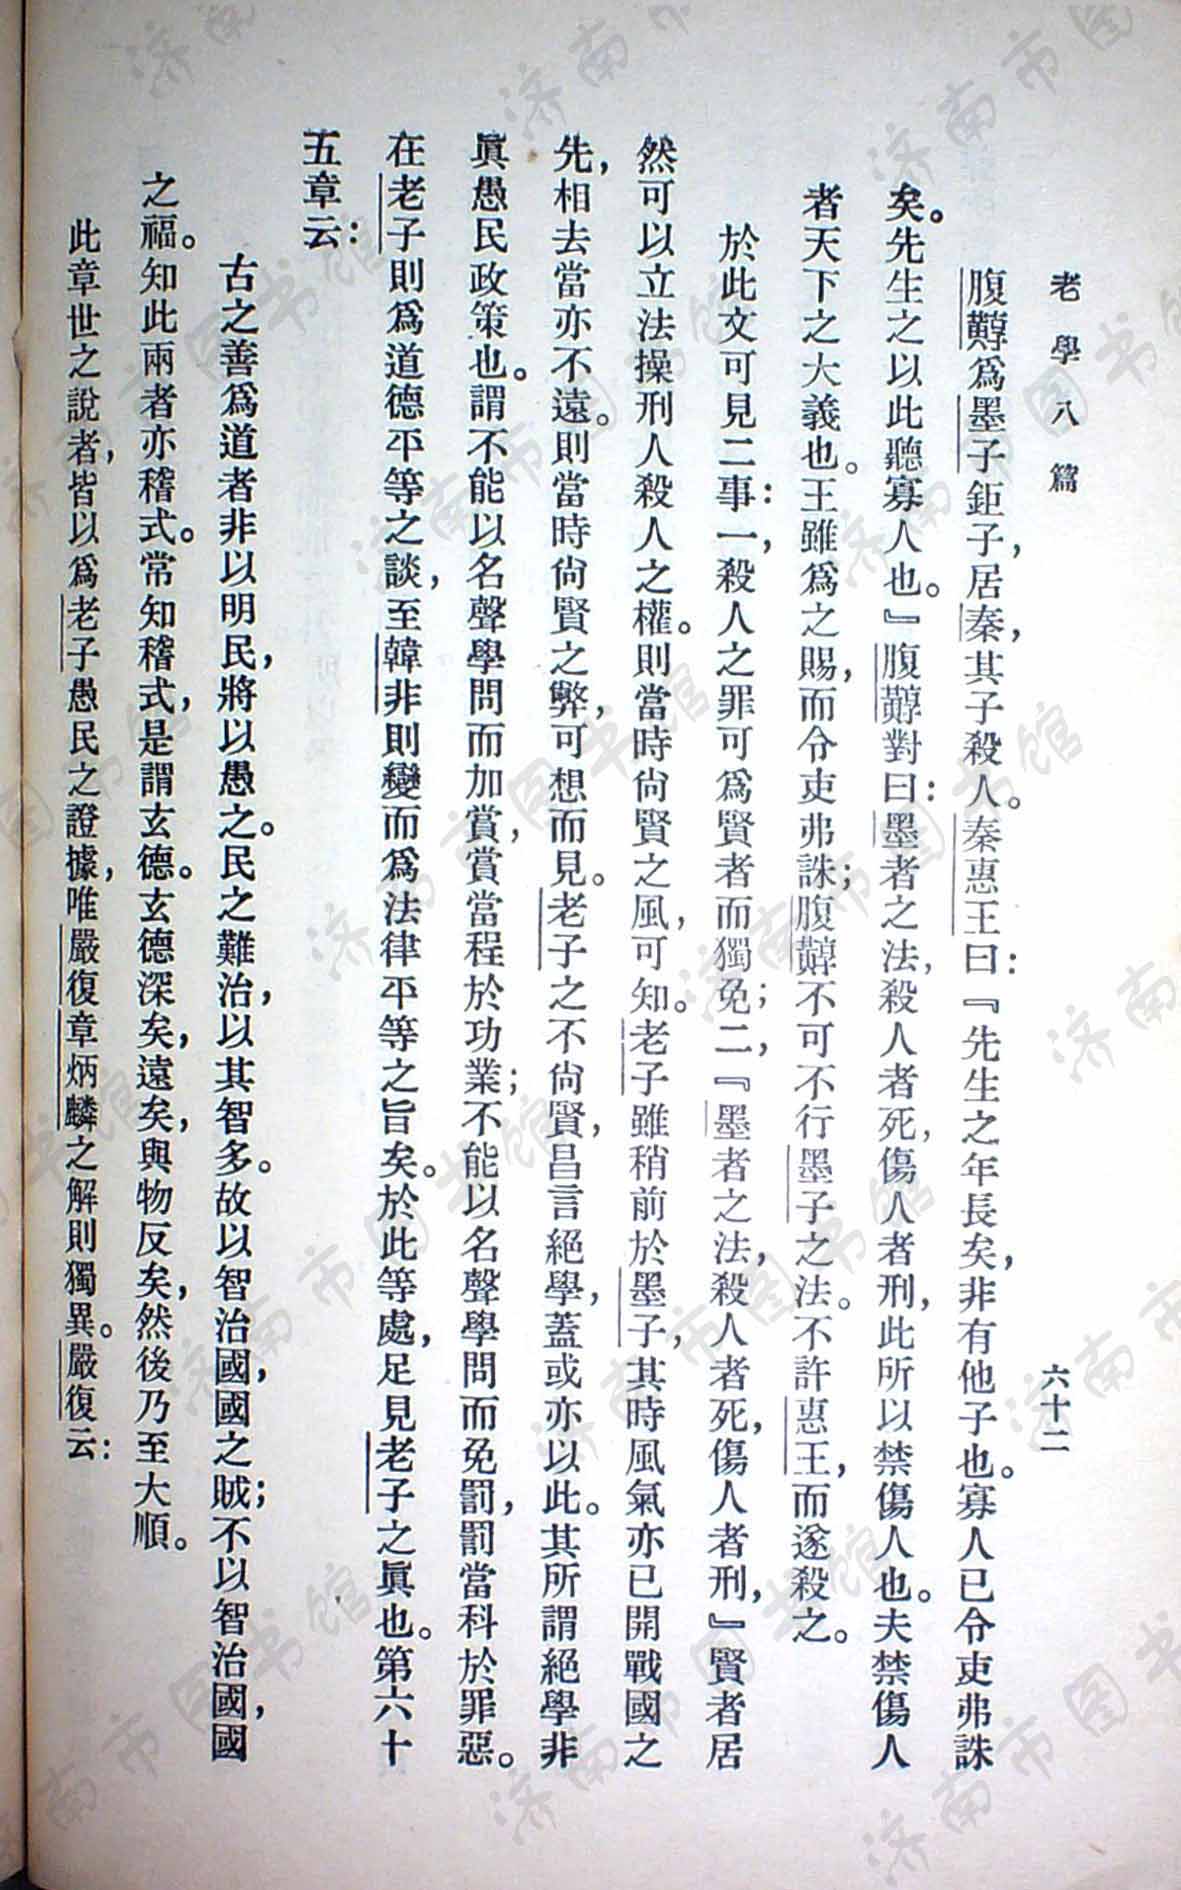 老學八篇
六十二
腹䵍爲墨子鉅子，居秦，其子殺人。秦惠王曰：『先生之年長矣，非有他子也。寡人已令吏弗誅
矣。先生之以此聽寡人也。』腹䵍對曰：墨者之法，殺人者死，傷人者刑，此所以禁傷人也。夫禁傷人
者天下之大義也。王雖爲之賜，而令吏弗誅；腹䵍不可不行墨子之法。不許惠王，而遂殺之。
於此文可見二事：一，殺人之罪可爲賢者而獨免；二，『墨者之法，殺人者死，傷人者刑，』賢者居
然可以立法操刑人殺人之權。則當時尙賢之風，可知。老子雖稍前於墨子，其時風氣亦已開戰國之
先，相去當亦不遠。則當時尙賢之弊，可想而見。老子之不尙賢，昌言絕學，蓋或亦以此。其所謂絕學非
眞愚民政策也。謂不能以名聲學問而加賞，賞當程於功業；不能以名聲學問而免罰，罰當科於罪惡。
在老子則爲道德平等之談，至韓非則變而爲法律平等之旨矣。於此等處，足見老子之眞也。第六十
五章云：
古之善爲道者非以明民，將以愚之。民之難治，以其智多。故以智治國，國之賊；不以智治國，國
之福。知此兩者亦稽式。常知稽式，是謂玄德。玄德深矣，遠矣，與物反矣，然後乃至大順。
此章世之說者，皆以爲老子愚民之證據，唯嚴復章炳麟之解則獨異。嚴復云：
济南市图书馆